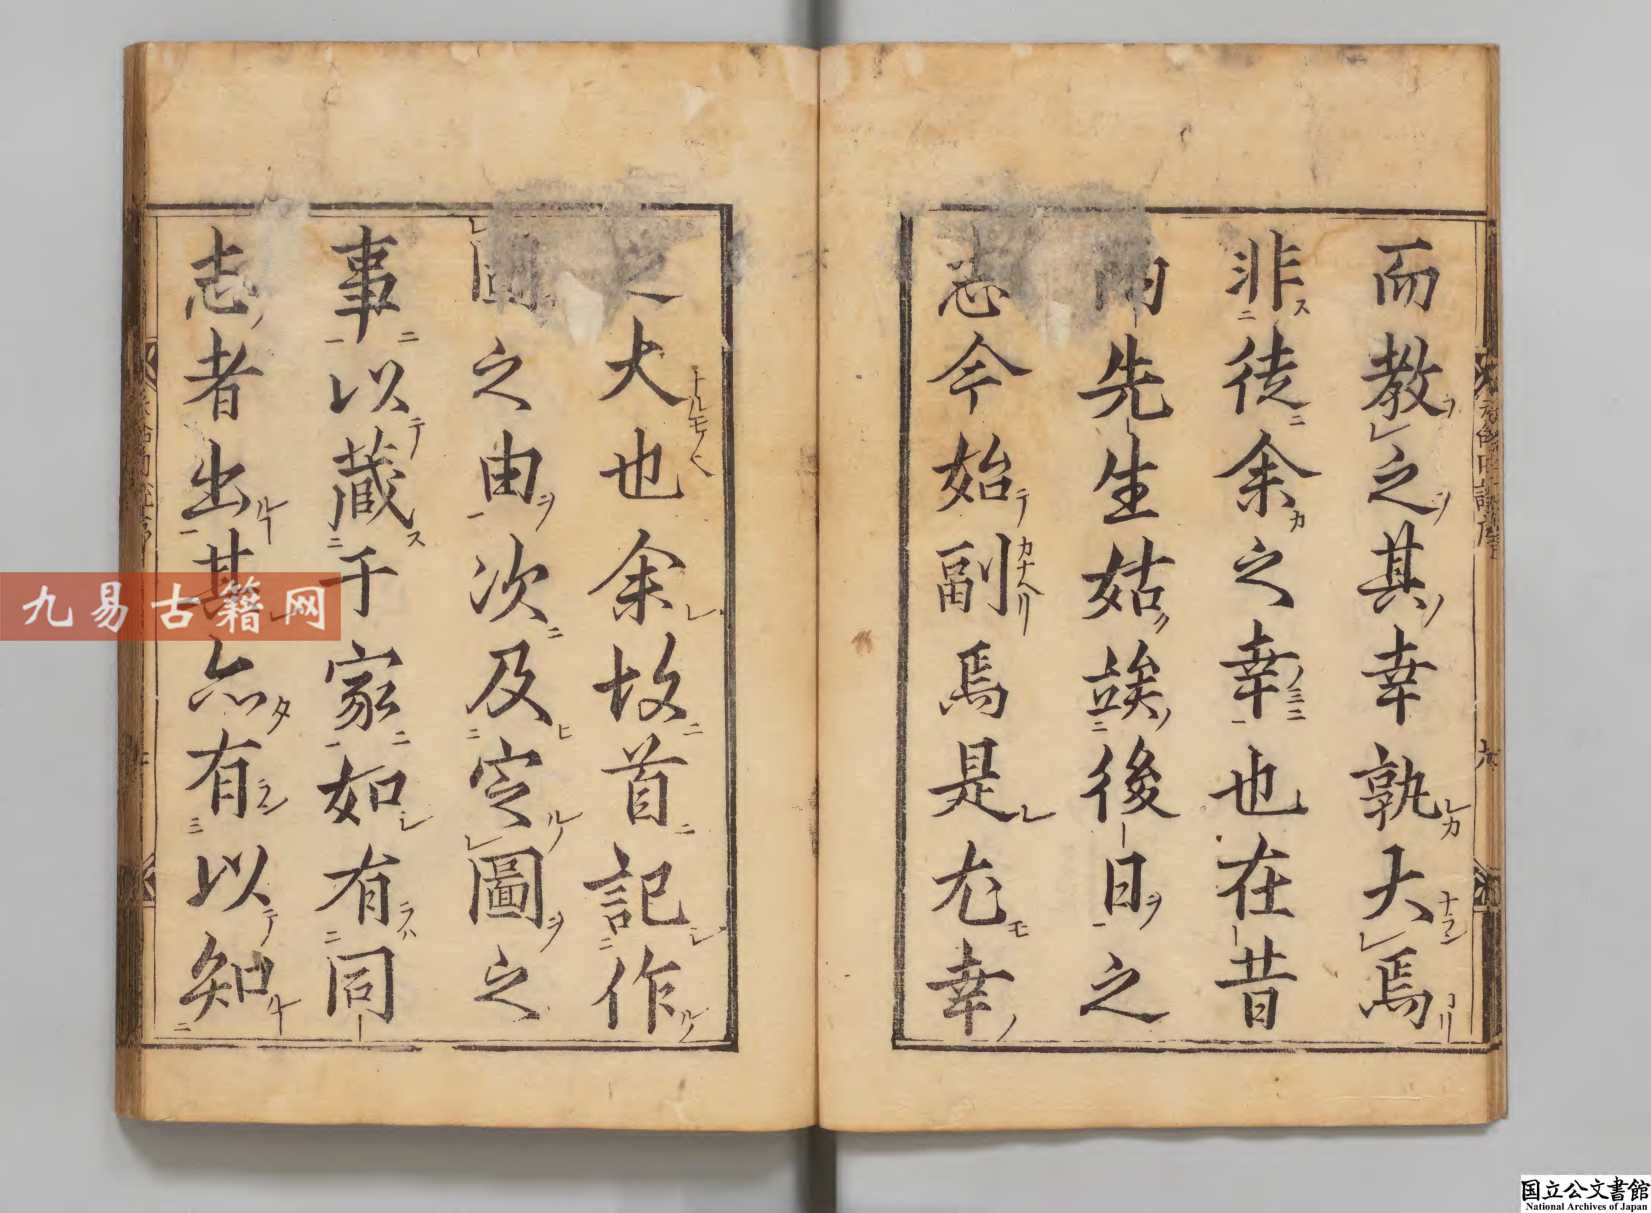 而教之其幸孰大焉
非徒余之幸也在昔
両先生姑竢後日之
志今始副焉是尤幸
之大也余故首記作
圖之由次及定圖之
事以蔵于家如有同
志者出其亦有以知
九易古籍网
国立公文書館
National Archives of Japan